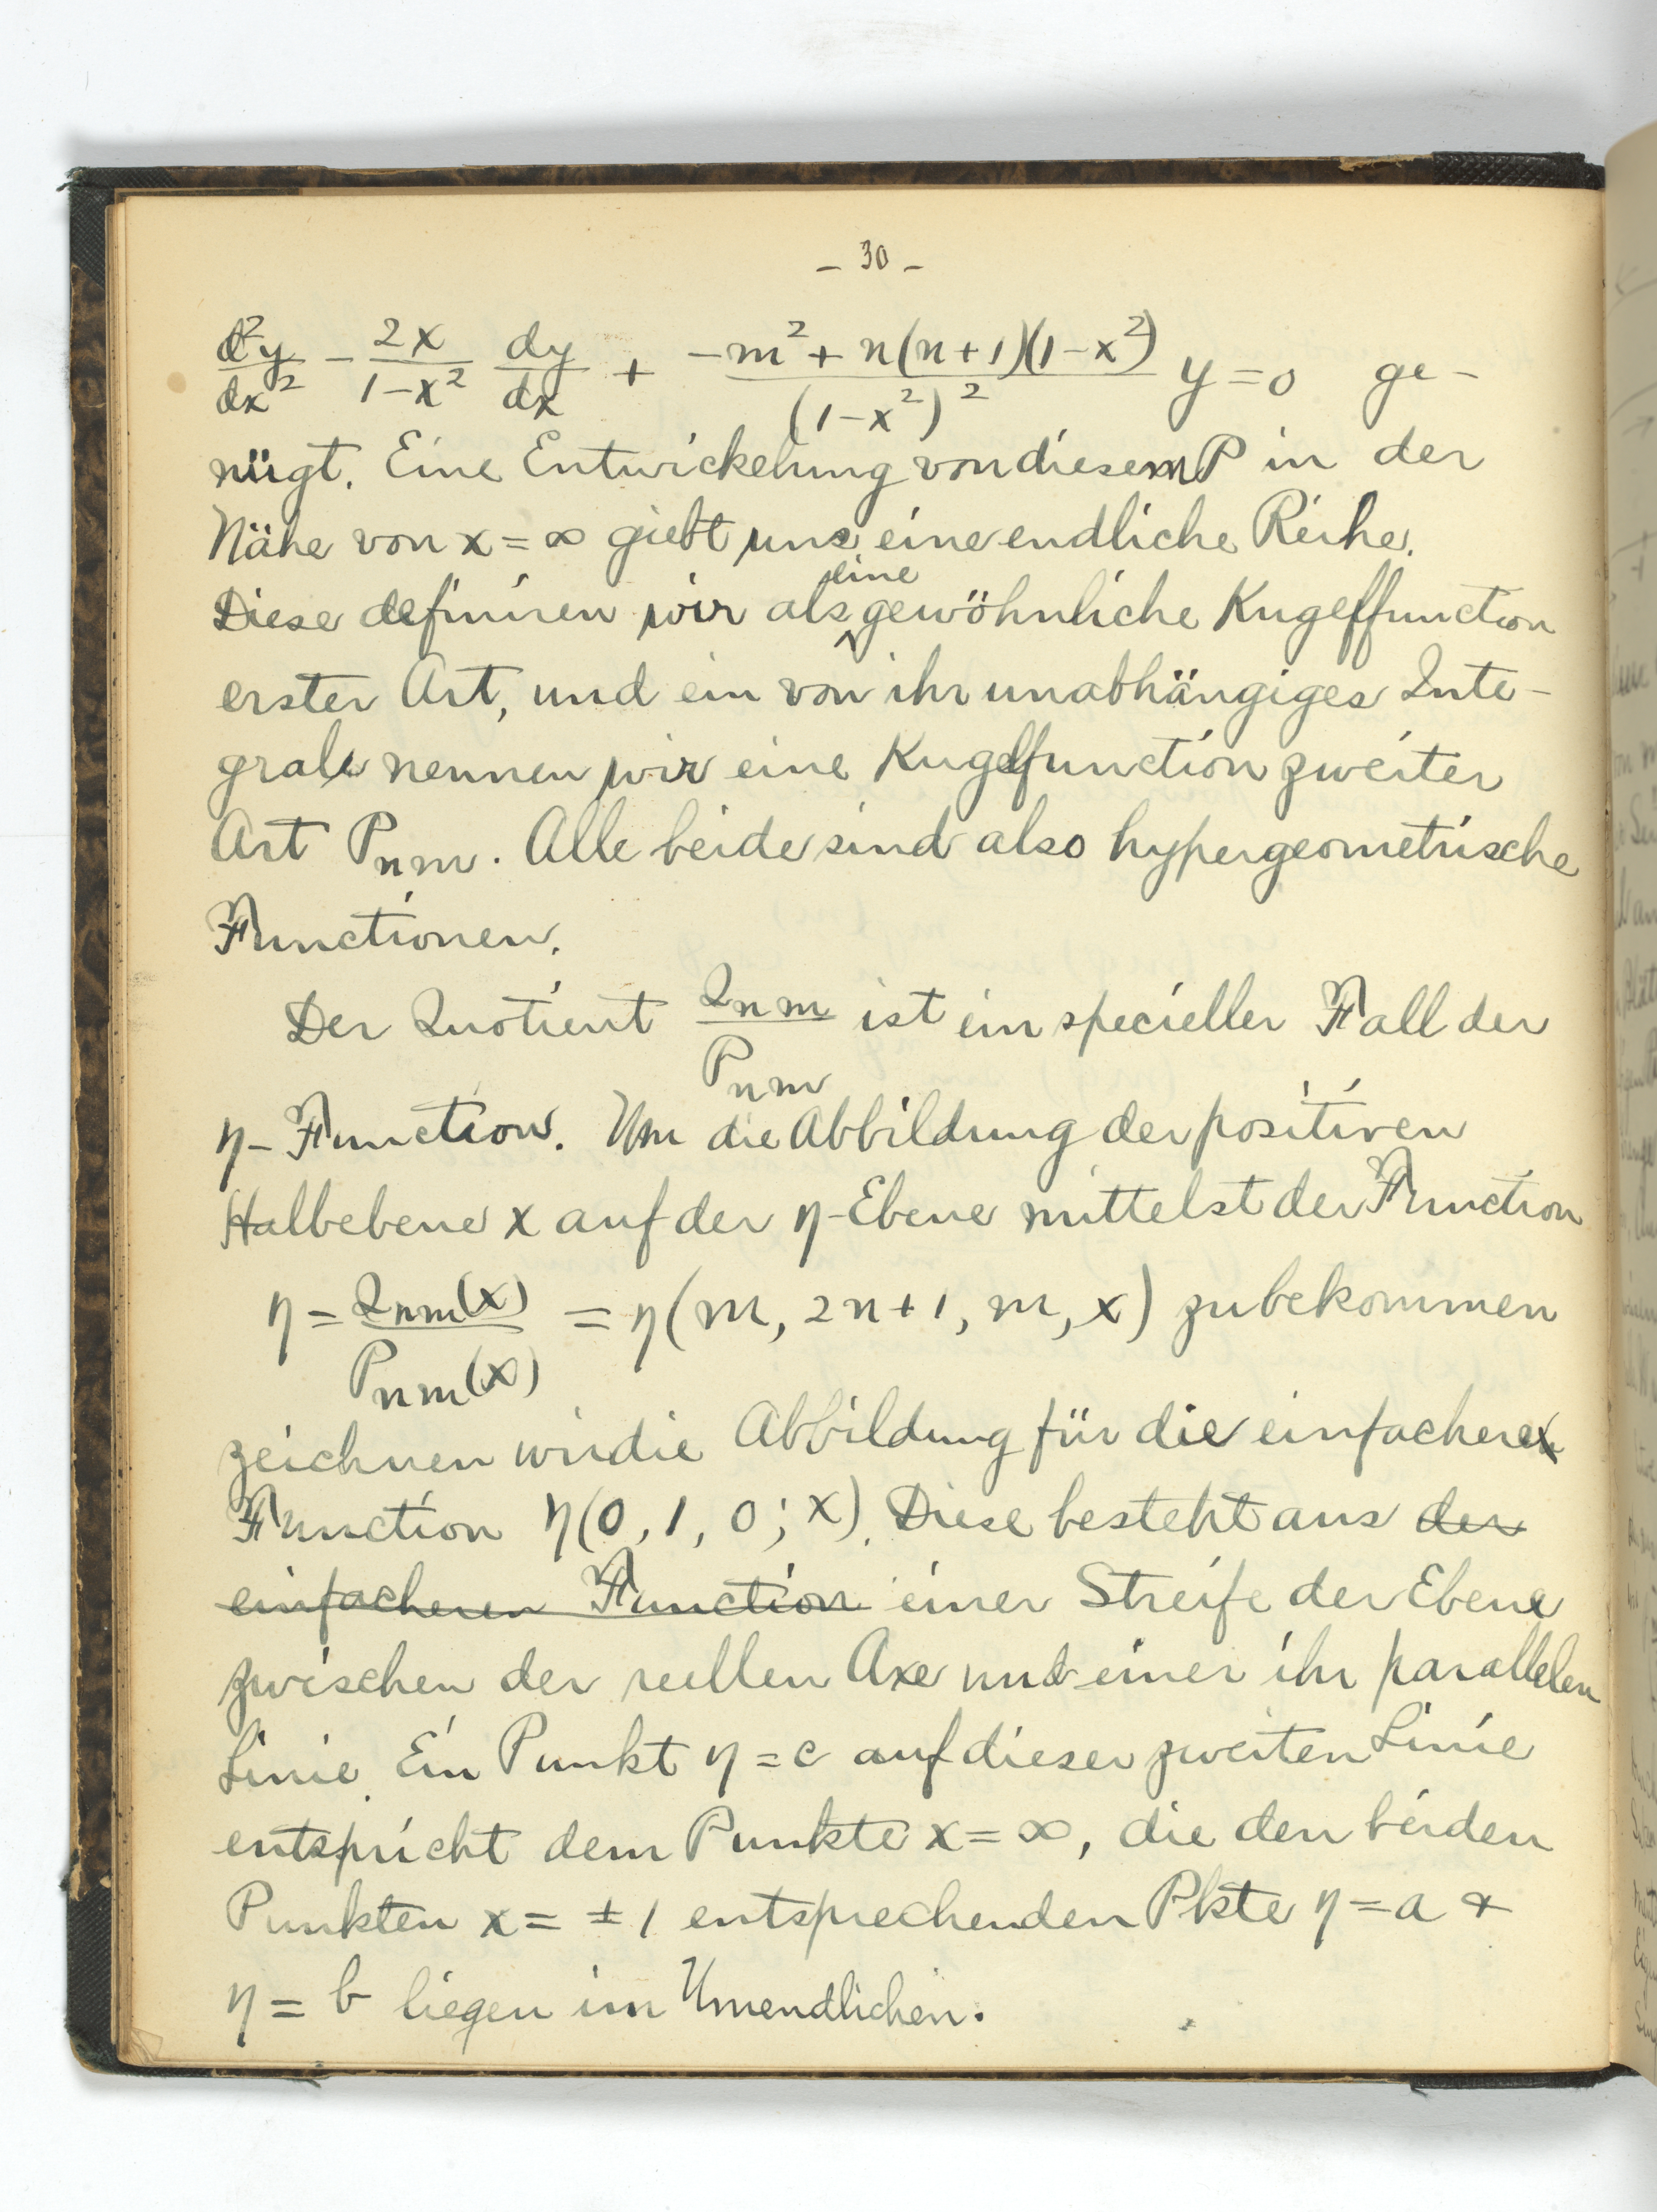 - 30 -
d²y/dx² - 2x/1-x² dy/dx + -m²+n(n+1)(1-x²)/(1-x²)² y = 0 ge-
nügt. Eine Entwickelung von diesem P in der
Nähe von x = ∞ giebt uns eine endliche Reihe.
Diese definiren wir als eine gewöhnliche Kugelfunction
erster Art, und ein von ihr unabhängiges Inte-
grale nennen wir eine Kugelfunction zweiter
Art Pnm. Alle beide sind also hypergeometrische
Functionen.
Der Quotient Qnm/Pnm ist ein specieller Fall der
η-Function. Um die Abbildung der positiven
Halbebene x auf der η-Ebene mittelst der Function
η = Qnm(x)/Pnm(x) = η(m, 2n+1, m, x) zu bekommen
zeichnen wir die Abbildung für die einfachere
Function η(0, 1, 0; x). Diese besteht aus der
einfacheren Function einer Streife der Ebene
zwischen der reellen Axe und einer ihr parallelen
Linie. Ein Punkt η = c auf dieser zweiten Linie
entspricht dem Punkte x = ∞, die den beiden
Punkten x = ±1 entsprechenden Pkte η = a +
η = b liegen im Unendlichen.